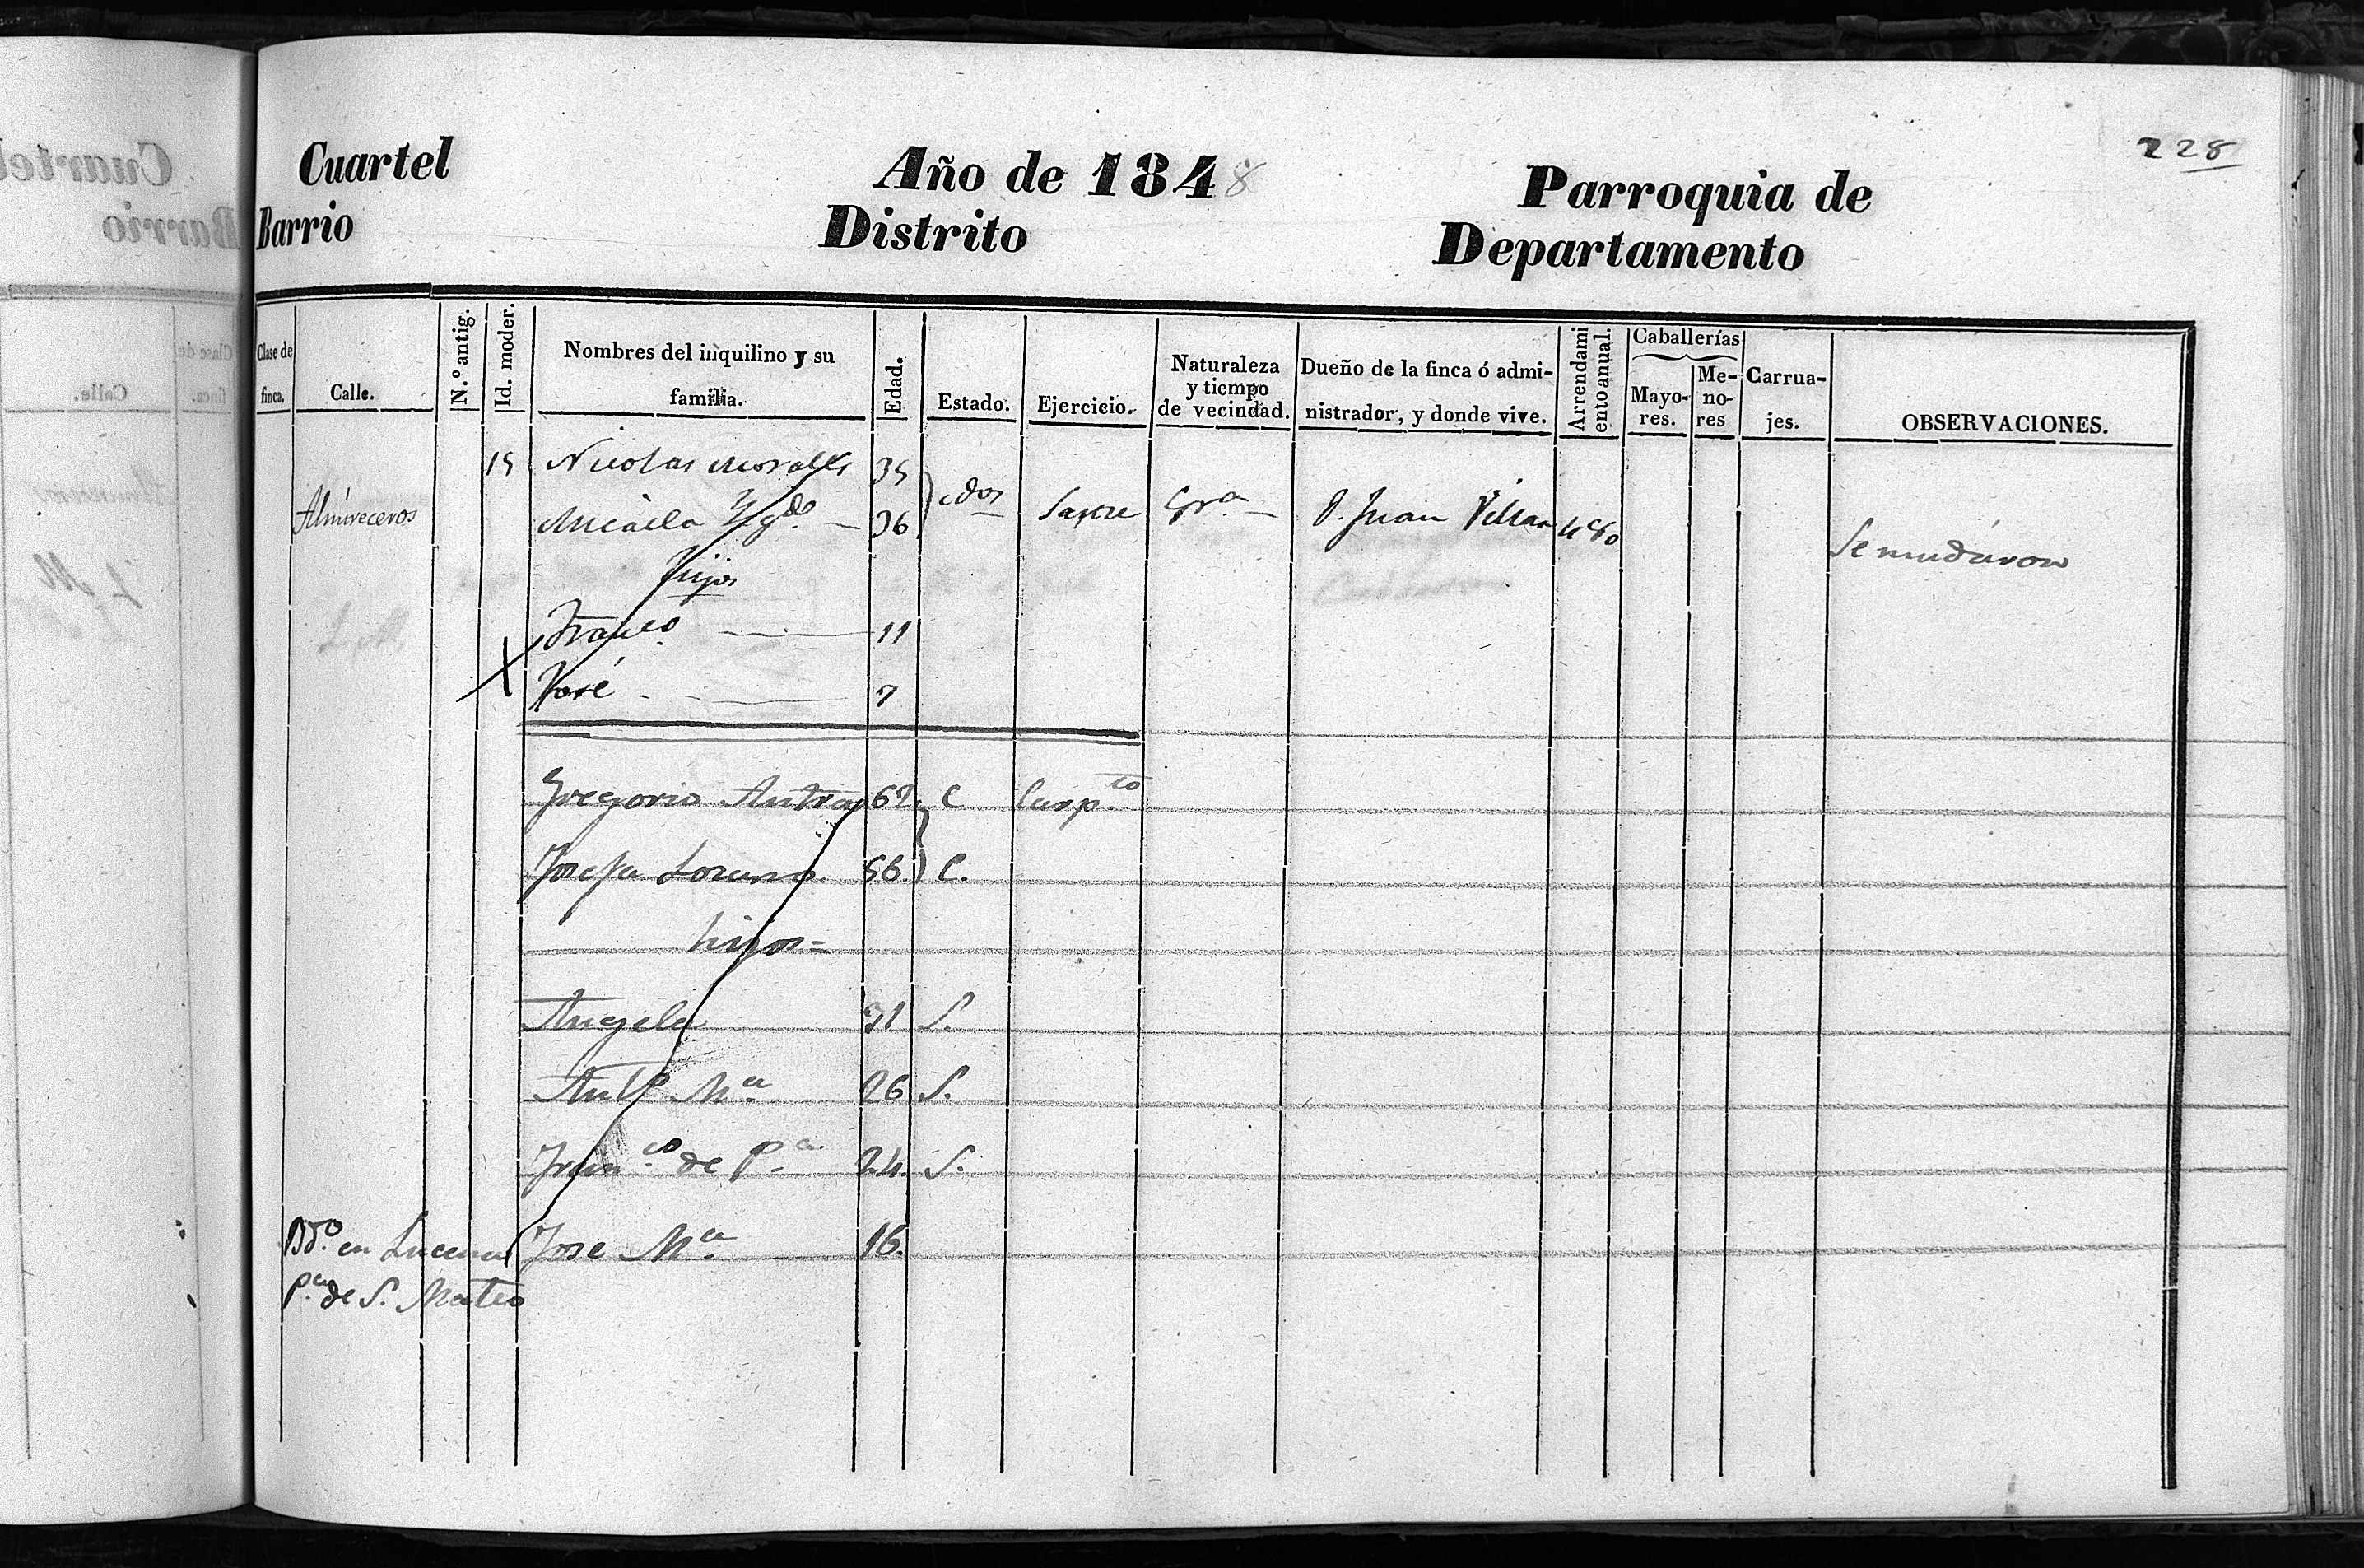 228
Cuartel Año de 1848 Parroquia de
Barrio Distrito Departamento
Clase de finca. Calle. N.º antig. Id. moder. Nombres del inquilino y su familia. Edad. Estado. Ejercicio. Naturaleza y tiempo de vecindad. Dueño de la finca ó administrador, y donde vive. Arrendamiento anual. Caballerías Mayores. Menores Carruajes. OBSERVACIONES.
15 Nicolas Morales 35
Almireceros Micaela 36 cdos Sastre Gra. D. Juan Villar 480 Se mudaron
Hijos
Franco. 11
José 7
Gregorio Antras 62. C Carpto
Josefa Lozano. 56. C.
hijos=
Angela 31 S.
Anto. Ma. 26 S.
Franco. de Pa. 24. S.
Bdo. en Lucena Jose Ma. 16.
Pa. de S. Mateo